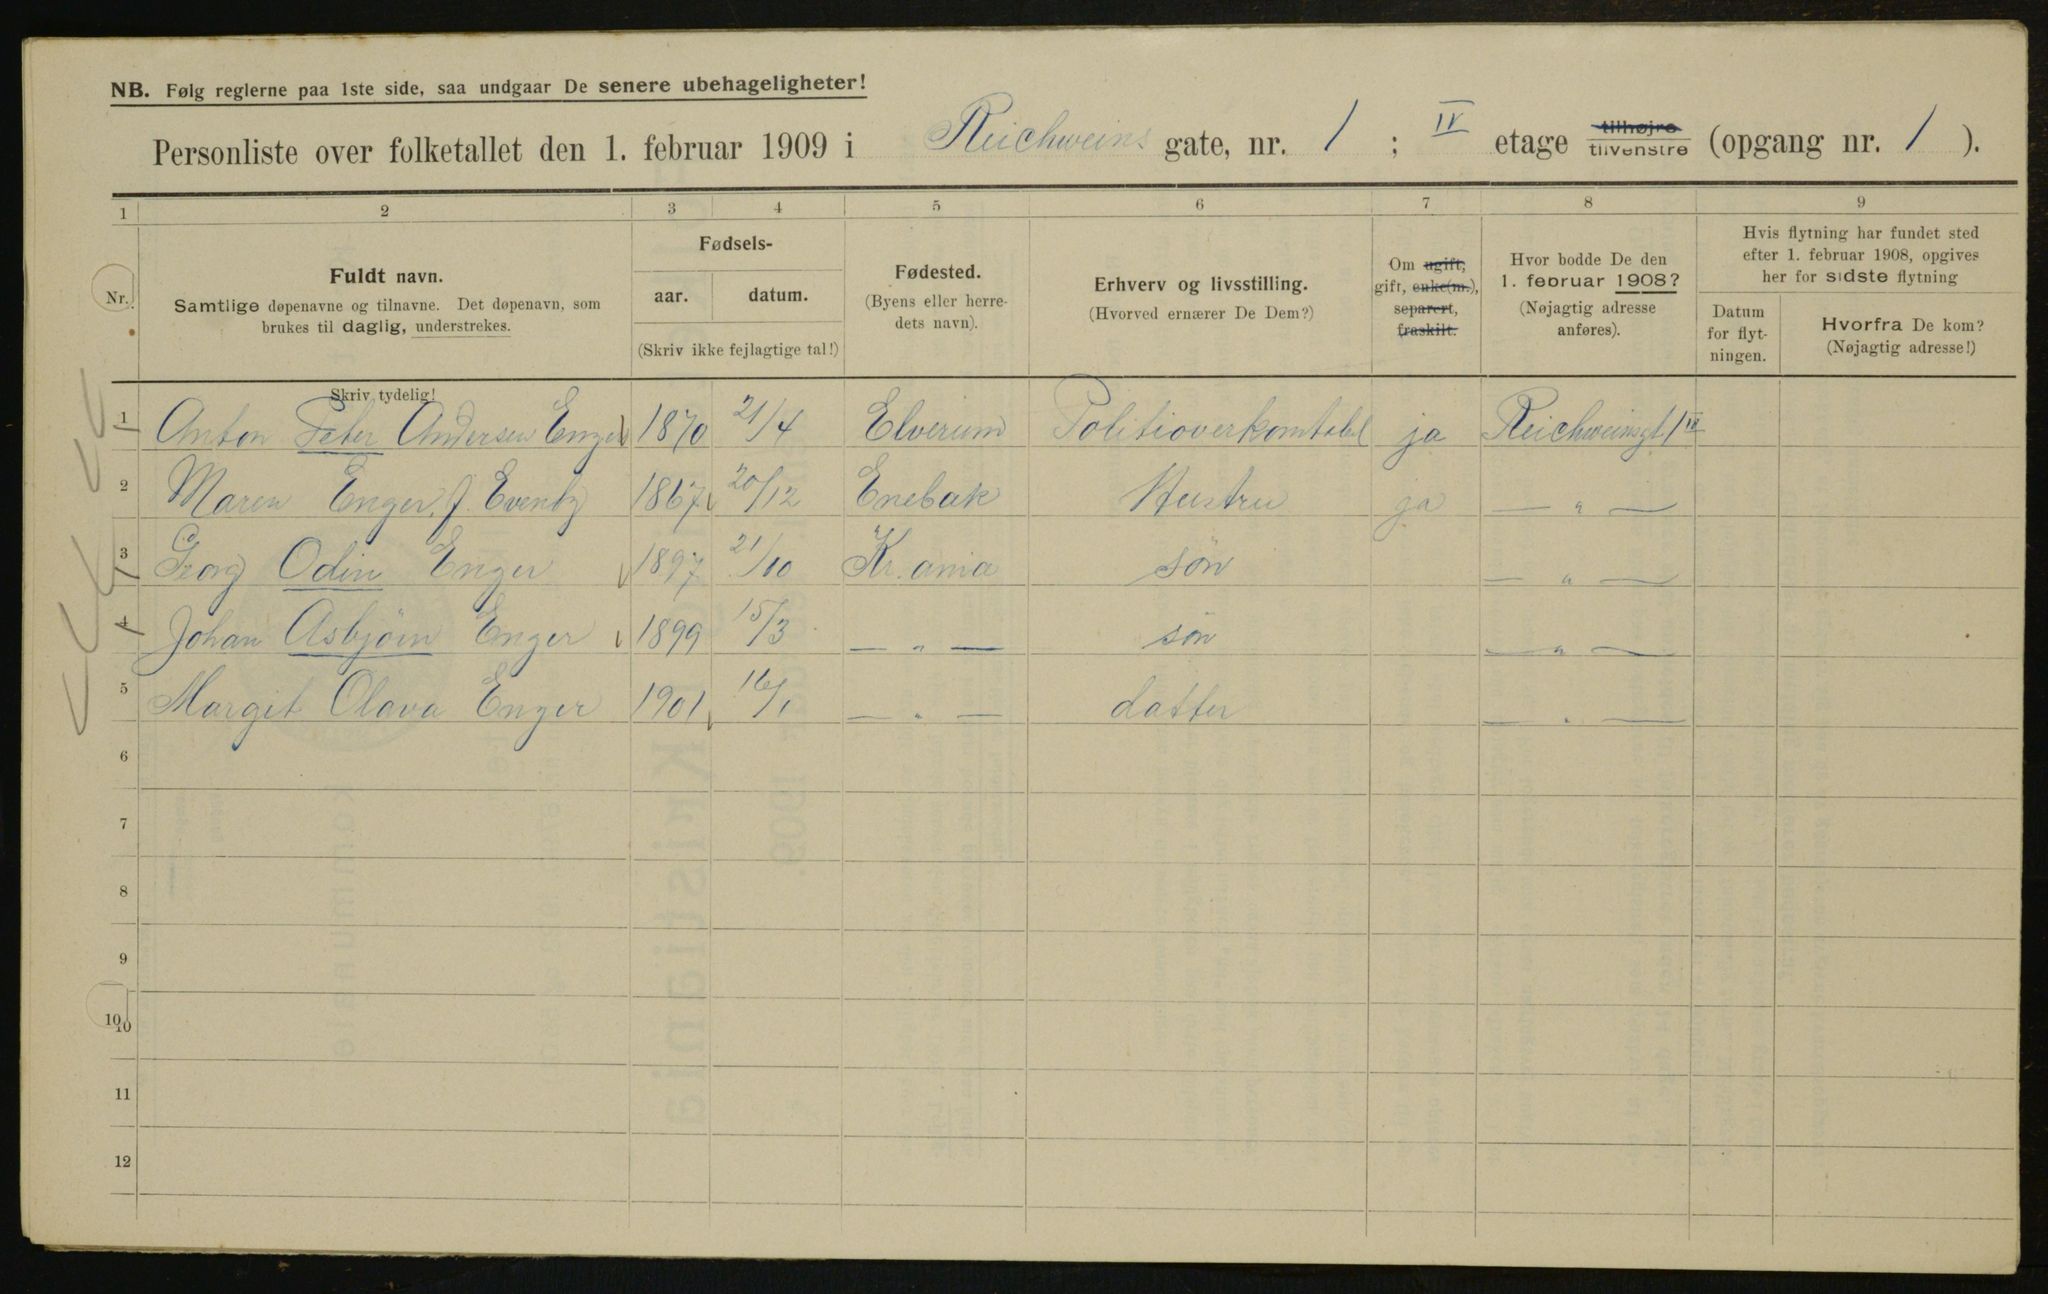 NB. Følg reglerne paa 1ste side, saa undgaar De senere ubehageligheter!
Personliste over folketallet den 1. februar 1909 i Reichweins gate, nr. 1 ; IV etage tilhøjre tilvenstre (opgang nr. 1 ).
1 2 3 4 5 6 7 8 9
Nr.
Fuldt navn.
Samtlige døpenavne og tilnavne. Det døpenavn, som
brukes til daglig, understrekes.
Skriv tydelig!
Fødsels-
aar. datum.
(Skriv ikke fejlagtige tal!)
Fødested.
(Byens eller herre-
dets navn).
Erhverv og livsstilling.
(Hvorved ernærer De Dem?)
Om ugift,
gift, enke(m.),
separert,
fraskilt.
Hvor bodde De den
1. februar 1908?
(Nøjagtig adresse
anføres).
Hvis flytning har fundet sted
efter 1. februar 1908, opgives
her for sidste flytning
Datum
for flyt-
ningen.
Hvorfra De kom?
(Nøjagtig adresse!)
1 Anton Peter Andersen Enger 1870 21/4 Elverum Politioverkontabel ja Reichweinsgt. 1 IV
2 Maren Enger, f. Evenby 1867 20/12 Enebak Hustru ja — " —
3 Georg Odin Enger 1897 21/10 Kr.ania søn — " —
4 Johan Asbjörn Enger 1899 15/3 — " — søn — " —
5 Margit Olava Enger 1901 16/1 — " — datter — " —
6
7
8
9
10 10
11
12